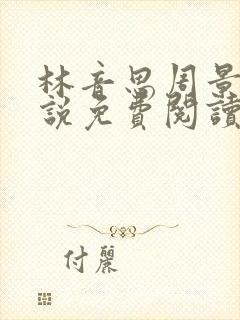 林音思周景
說免費閱讀
付麗